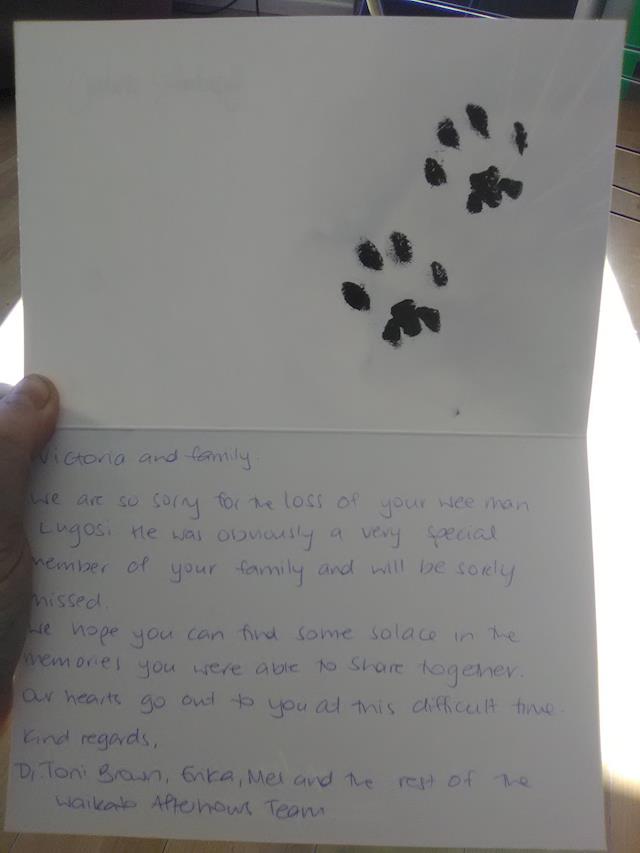 Victoria and family.
We are so sorry for the loss of your wee man
Lugosi. He was obviously a very special
member of your family and will be sorely
missed.
We hope you can find some solace in the
memories you were able to share together.
Our hearts go out to you at this difficult time.
Kind regards,
Dr Toni Brown, Erika, Mel and the rest of the
Waikato Afterhours Team